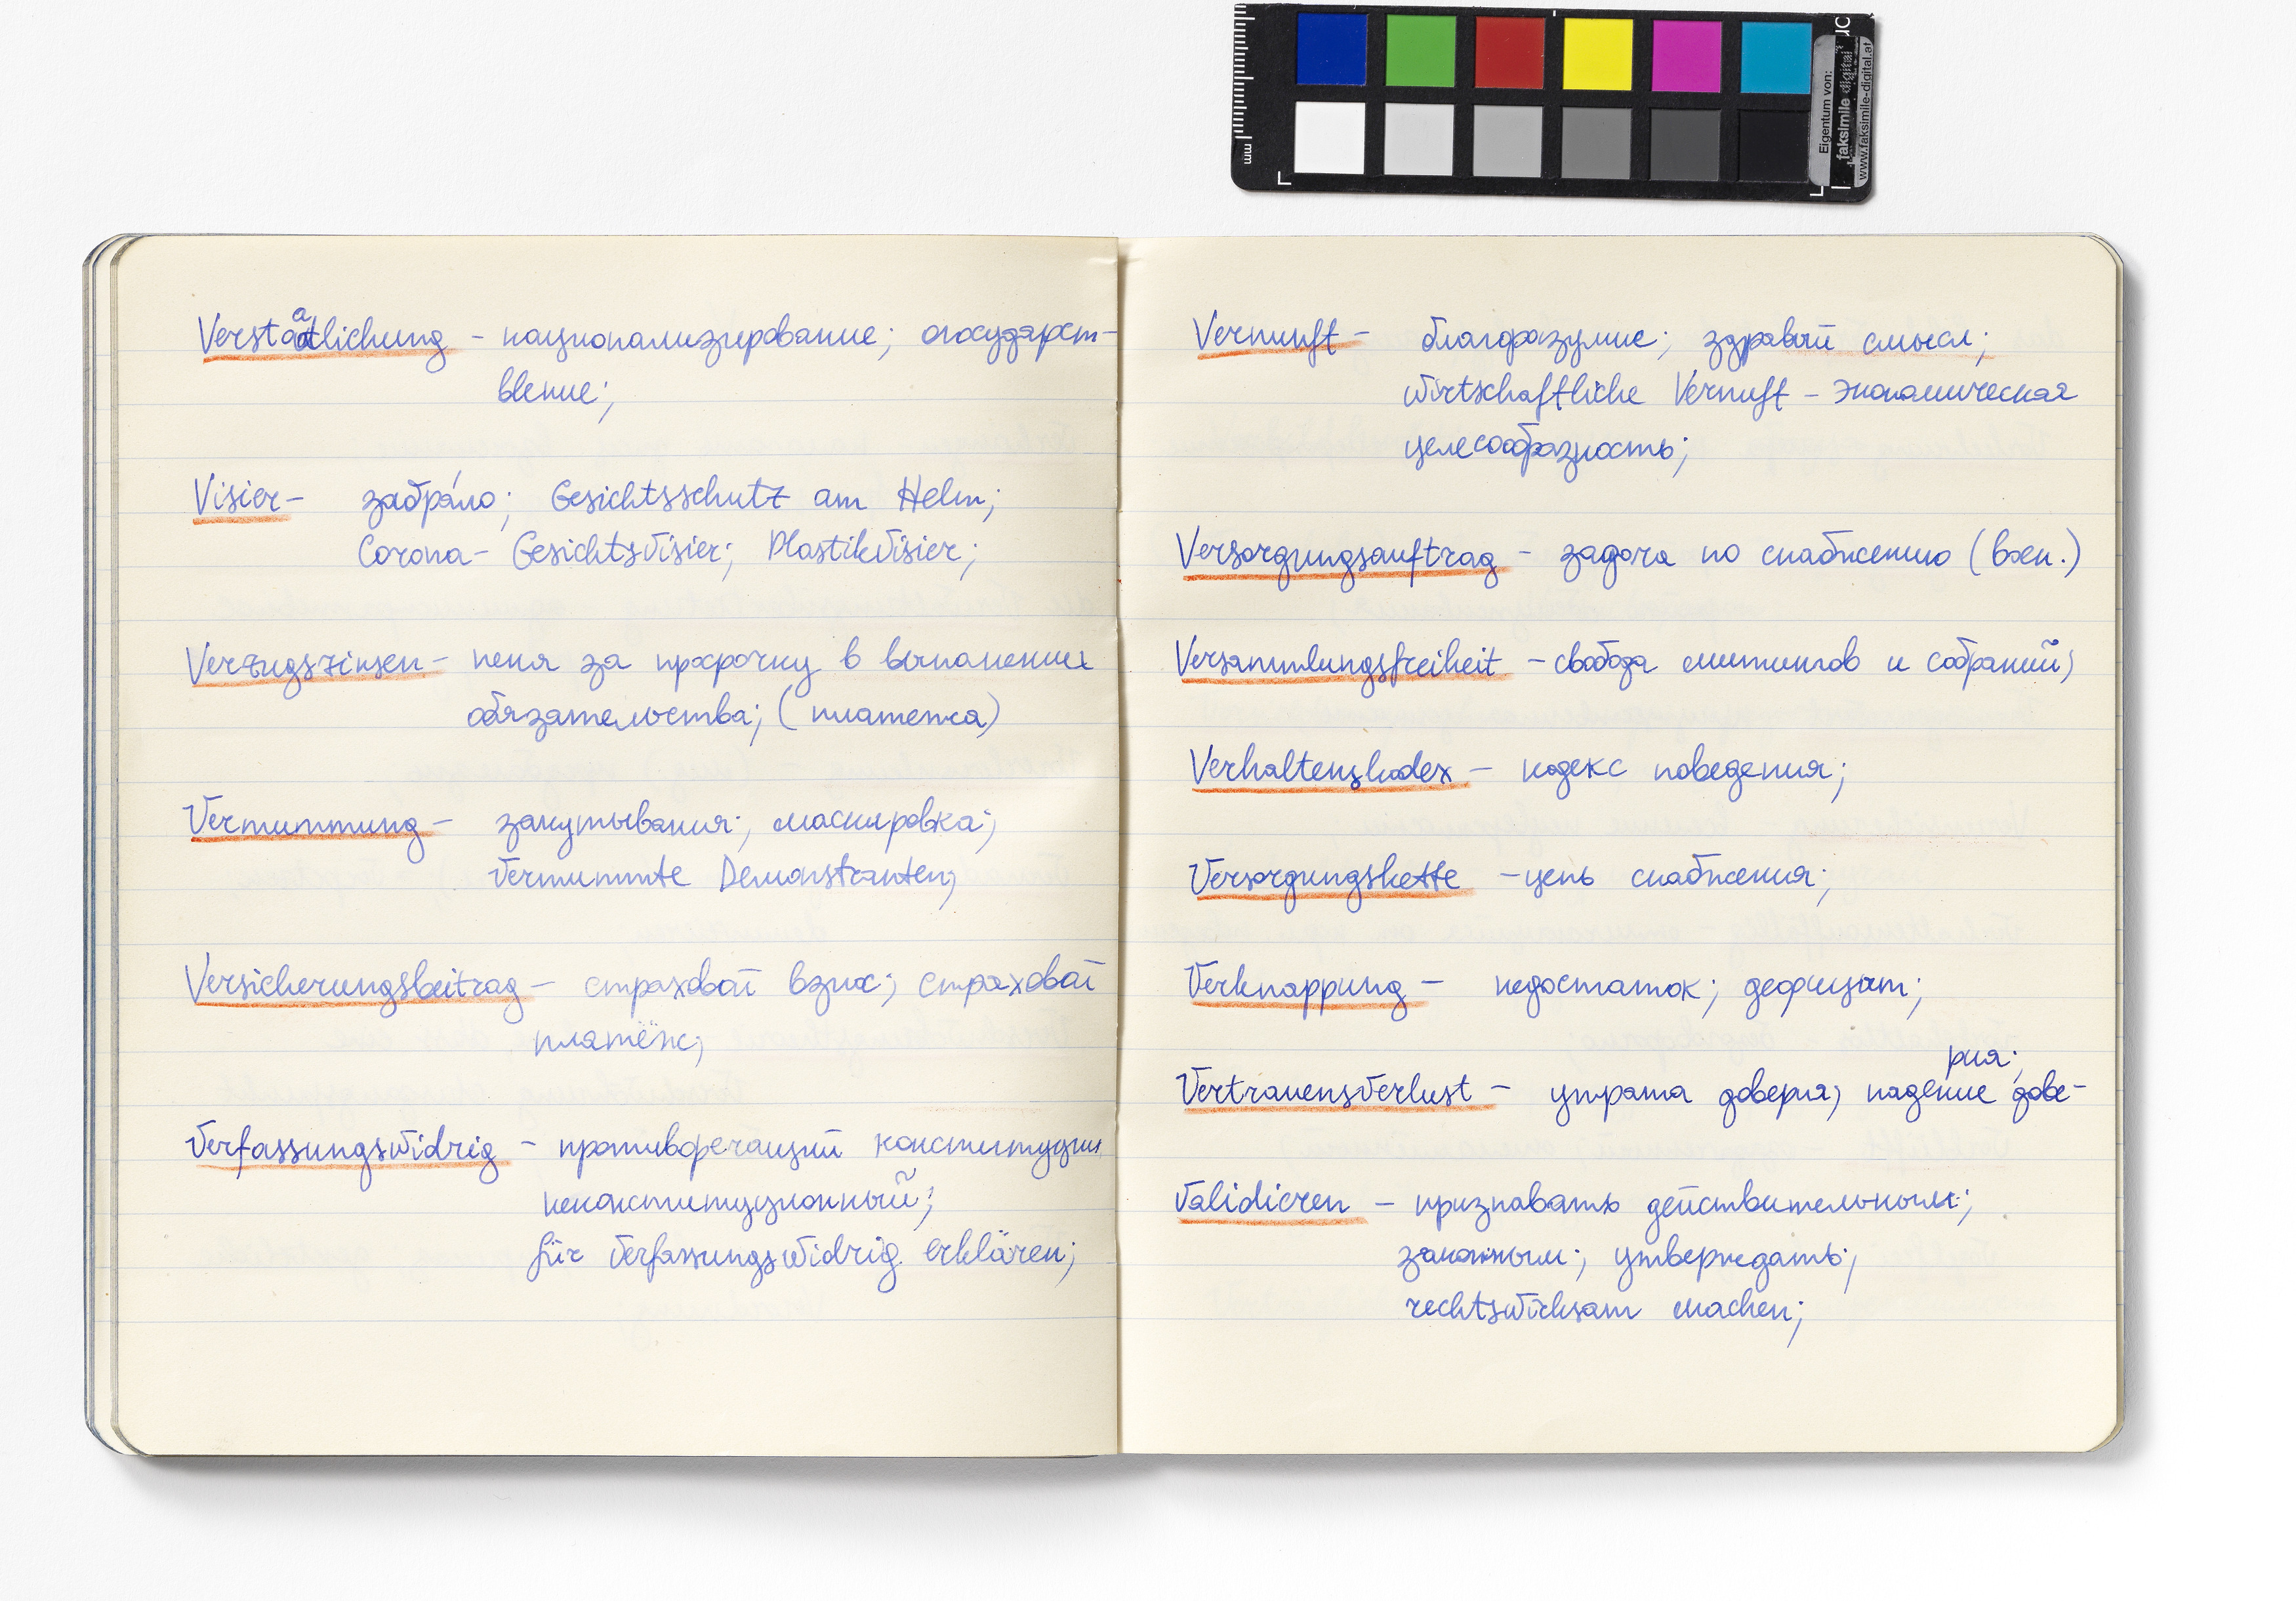 Verstaatlichung – национализирование; огосударст-
вление;
Visier – забра́ло; Gesichtsschutz am Helm;
Corona- Gesichtsvisier; Plastikvisier;
Verzugszinsen – пеня за просрочку в выполнении
обязательства; (платежа)
Vermummung – закутывания; маскировка;
Vermummte Demonstranten;
Versicherungsbeitrag – страховой взнос; страховой
платёж;
Verfassungswidrig – противоречащий конституции
неконституционный;
für Verfassungswidrig erklären;
Vernunft – благоразумие; здравый смысл;
wirtschaftliche Vernuft – экономическая
целесообразность;
Versorgungsauftrag – задача по снабжению (воен.)
Versammlungsfreiheit – свобода митингов и собраний;
Verhaltenskodex – кодекс поведения;
Versorgungskette – цепь снабжения;
Verknappung – недостаток; дефицит;
Vertrauensverlust – утрата доверия; падение дове-
рия;
Validieren – признавать действительным;
законным; утверждать;
rechtswirksam machen;
mm
Eigentum von:
faksimile digital
www.faksimile-digital.at